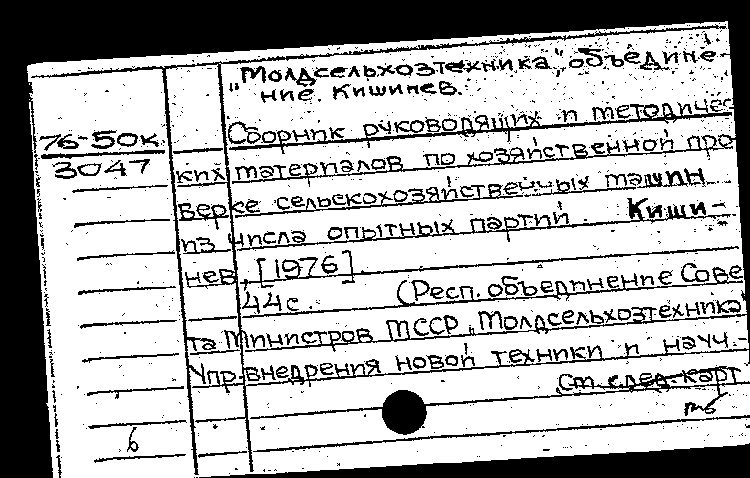 "Молдсельхозтехника", объедине-
ние. Кишинев.
76-50к
3047
Сборник руководящих и методичес
ких материалов по хозяйственной про
верке сельскохозяйственных машин
из числа опытных партий. Киши-
нев, [1976].
44с. (Респ. объединение Сове
та Министров МССР „Молдсельхозтехника"
Упр. внедрения новой техники и науч.-
См. след. карт
6